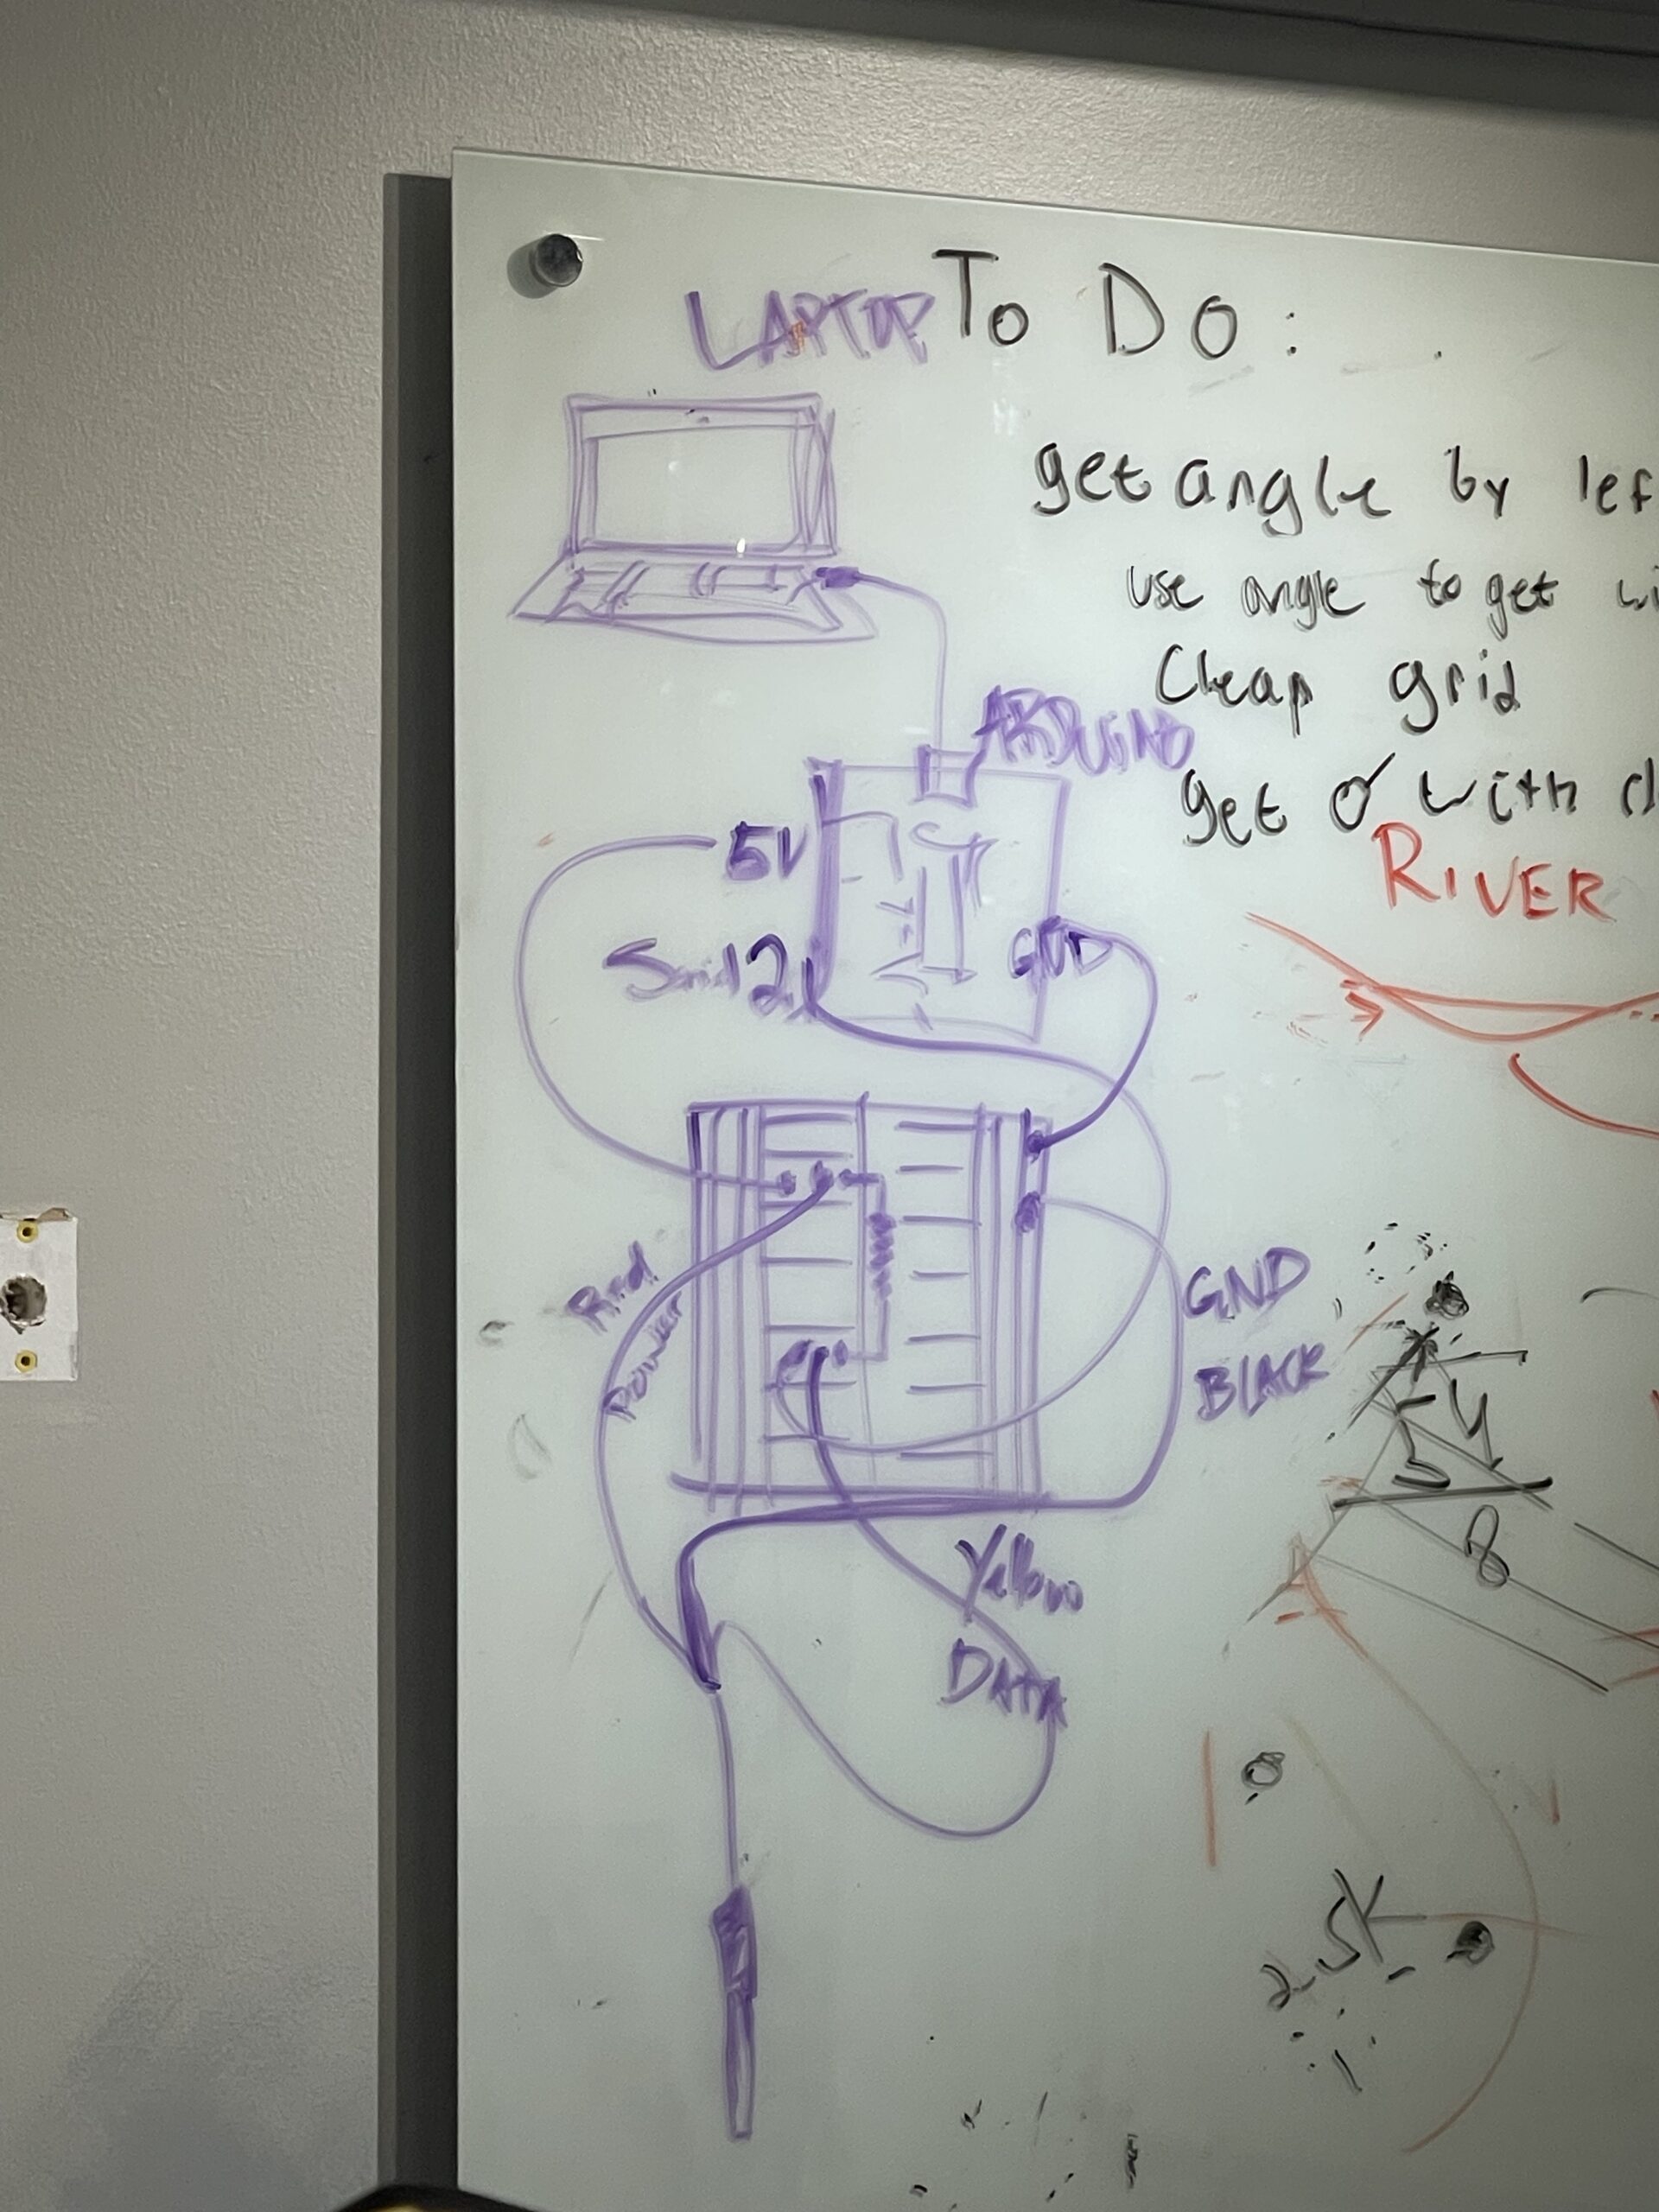 LAPTOP
To Do:
get angle by lef
use angle to get wi
Clean grid
get σ with d
ARDUINO
RIVER
5V
GND
Red
Power
GND
BLACK
54
8
Yellow
DATA
2.5K